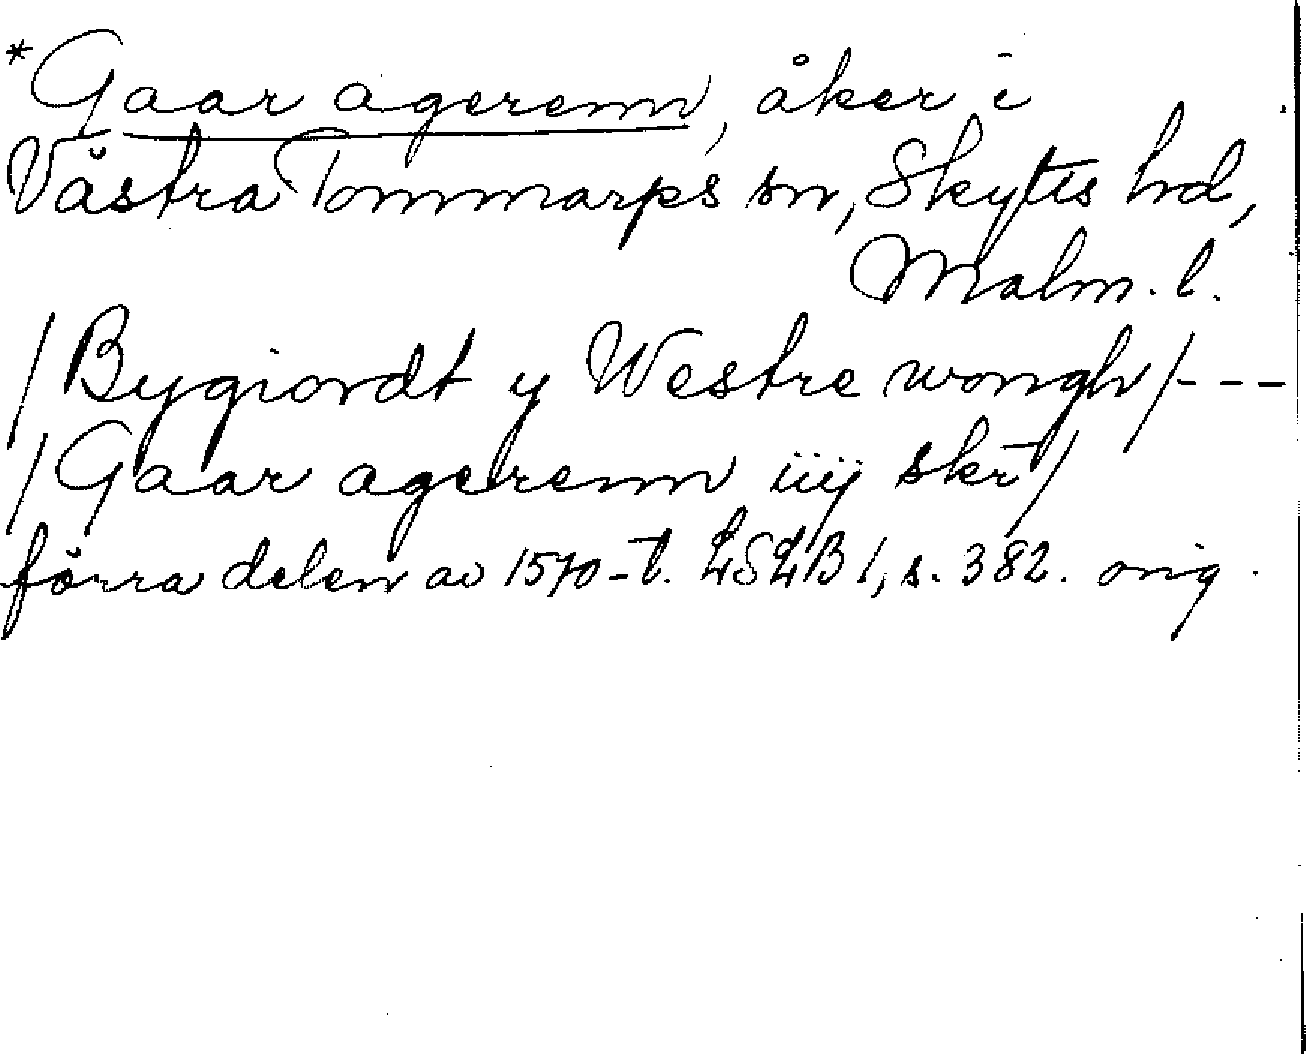 *Gaar agerenn, åker i
Västra Tommarps sn, Skytts hd,
Malm. l.
/Bygiordt y Westre wongh/---
/Gaar agerenn iiij skr̄/
förra delen av 1570-t. LSLB 1, s. 382. orig.